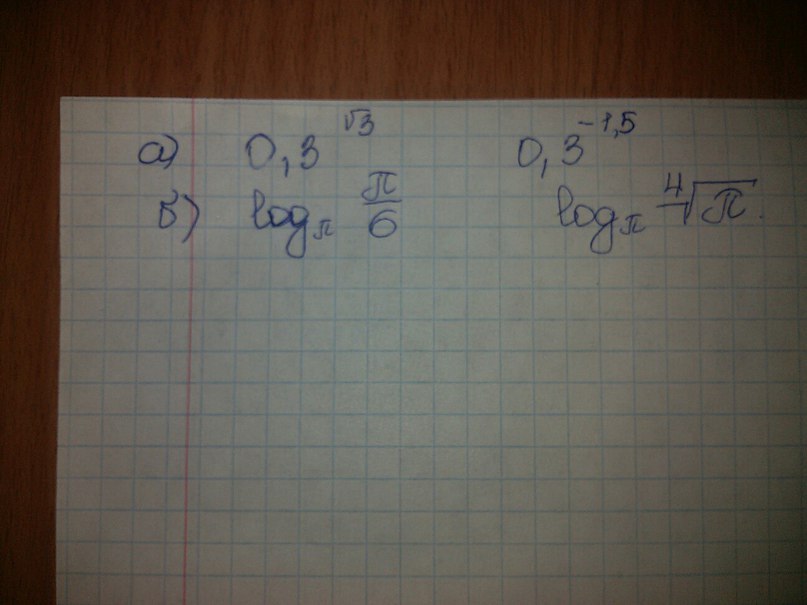 а) 0,3^√3 0,3^-1,5
б) log_π π/6 log_π ⁴√π.